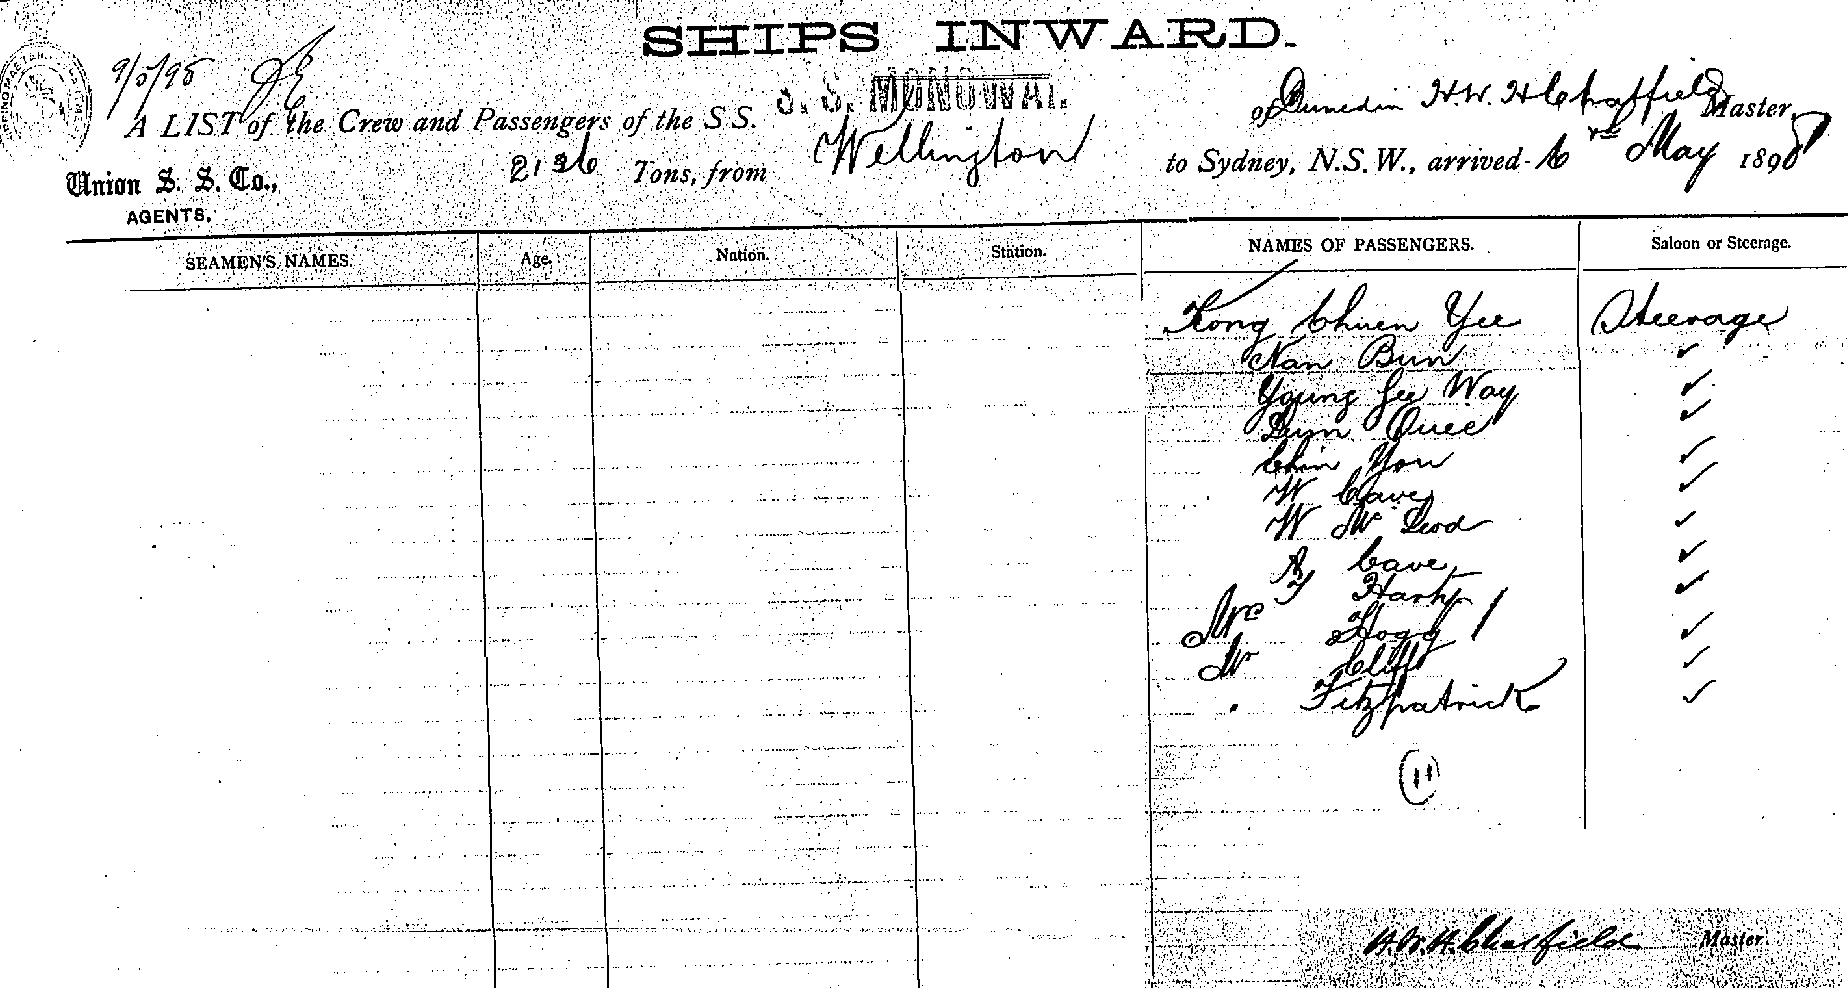 SHIPS INWARD.
9/5/98
A LIST of the Crew and Passengers of the S S. S. S. MONOWAI. of Dunedin H. W. H Chatfield Master,
Union S. S. Co., 2136 Tons, from Wellington to Sydney, N.S.W., arrived May 1898
AGENTS.
SEAMEN'S NAMES. Age. Nation. Station. NAMES OF PASSENGERS. Saloon or Steerage.
Kong Chuen Yee Steerage
Nan Bun ✓
Young Gee Way ✓
Lum Quee ✓
Chin You ✓
W Cave ✓
W Mc Leod ✓
A Cave ✓
Hart ✓
Mrs Hogg ✓
Mr Cliff ✓
" Fitzpatrick ✓
(11)
H. W. H. Chatfield Master.